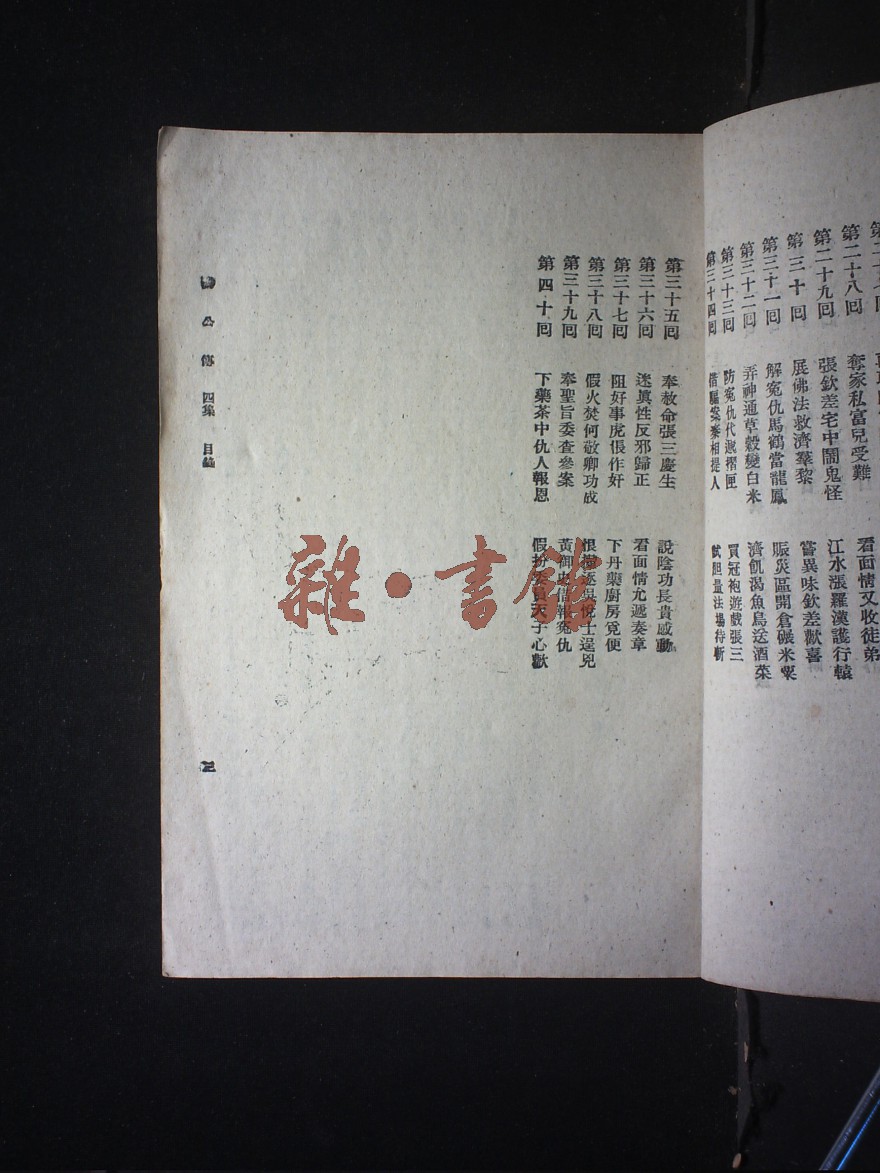 第二十八回　奪家私富兒受難　江水漲羅漢護行轅
第二十九回　張欽差宅中鬧鬼怪　嘗異味欽差歡喜
第三十回　展佛法救濟羣黎　賑災區開倉碾米粟
第三十一回　解冤仇馬鶴當龍鳳　濟飢渴魚鳥送酒菜
第三十二回　弄神通草穀變白米　買冠袍遊戲張三
第三十三回　防冤仇代遞摺匣　試胆量法場待斬
第三十四回　借騙案奏相提人
看面情又收徒弟
第三十五回　奉赦命張三慶生　說陰功長貴感動
第三十六回　迷眞性反邪歸正　看面情允遞奏章
第三十七回　阻好事虎倀作奸　下丹藥廚房覓便
第三十八回　假火焚何敬卿功成　恨逐吳悅士逞兇
第三十九回　奉聖旨委查參案　黃御史借報冤仇
第四十回　下藥茶中仇人報恩　假扮委員天子心歡
公傳　四集　目錄
三
雜·書館